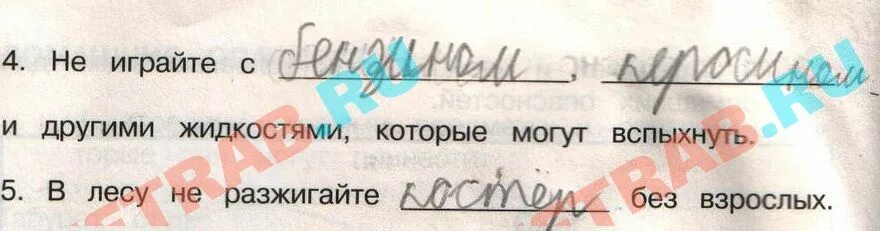 4. Не играйте с бензином, керосином
и другими жидкостями, которые могут вспыхнуть.
5. В лесу не разжигайте костёр без взрослых.